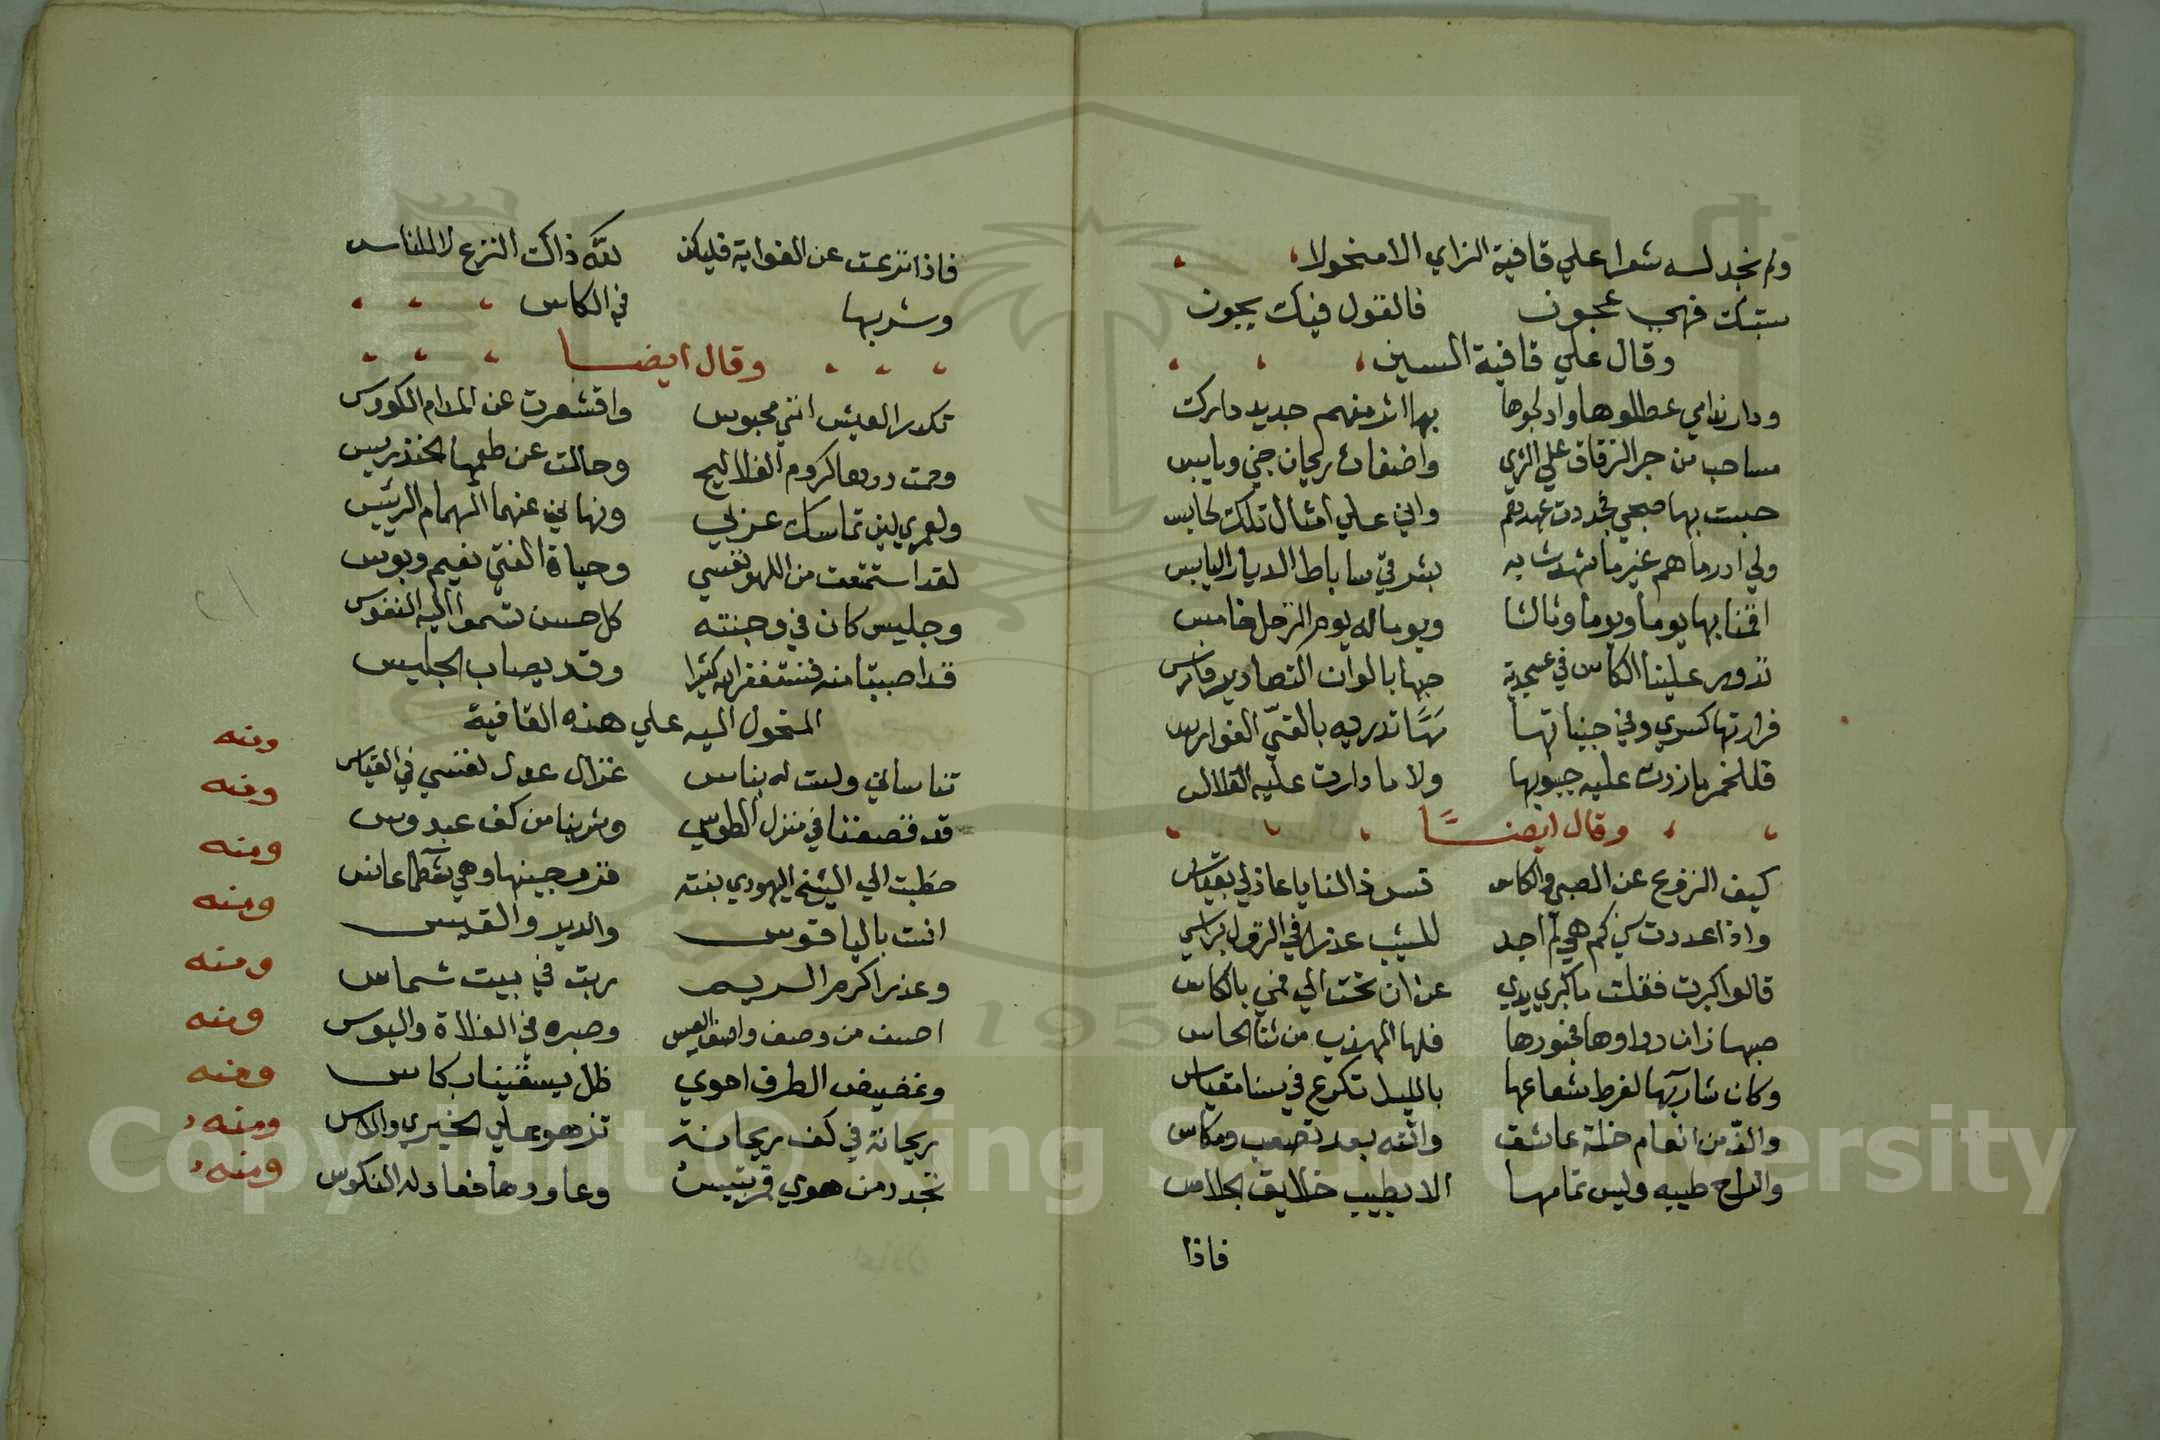 ولم نجد له شعرا علي قافية الزاي الا منحولا
ستبك فهي عجون فالقول فيك يجون
وقال علي قافية السين
ودار ندامي عطلوها وادلجوها بها اثر منهم جديد دارك
مساحب من جر الزقاق علي الثري واضغاث ريحان جني ويابس
حبست بها صحبي فجددت عهدهم واني علي امثال تلك لحابس
ولم ادر ما هم غير ما شهدت به بشرقي ساباط الديار البابس
اقمنا بها يوما ويوما وثالثا ويوما له يوم الترحل خامس
تدور علينا الكاس في عسجدية حبها بالوان التصاوير فارس
قرارتها كسري وفي جنباتها مها تدريه بالقسي الفوارس
فللخمر ما زرت عليه جيوبها ولا ما دارت عليه القلالس
وقال ايضا
كيف النزوع عن الصبي والكاس قس ذا لنا يا عاذلي بقياس
واذا عددت سني كم هي لم اجد للشيب عذرا في النزول براسي
قالوا كبرت فقلت ما كبرت يدي عن ان تحث الي فمي بالكاس
وكان شاربها لفرط شعاعها بالليل تكرع في سنا مقياس
والذ من انعام خلة عاشق والته بعد تصعب ومكاس
والراح طيبه وليس تمامها الا بطيب خلايق الجلاس
فاذا
فاذا نزعت عن الغواية فليكن لله ذاك النزع لا للناس
وشربها في الكاس
وقال ايضا
تكدر العيش انني محبوس واقشعرت عن المدام الكورس
وحمت درها كروم الفلاليج وحالت عن طعمها الخندريس
ولعمري لين تماسكت عزلي ونهاني عنها الهمام الرئيس
لقد استمتعت من اللهو نفسي وحياة الفتي نعيم وبوس
وجليس كان في وجنته كل حسن تسموا اليه النفوس
قد اصبنا منه فنستغفر الله كثيرا وقد يصاب الجليس
المنحول اليه علي هذه القافية
تناساني ولست له بناس غزال عدل نفسي في القياس ومنه
قد قصفنا في منزل الطوسي وشربنا من كف عبدوس ومنه
خطبت الي الشيخ اليهودي بنته فزوجنيها وهي شمطا عانس ومنه
انت بالياقوس والدير والقس ومنه
وعذرا كرم الريم ربت في بيت شماس ومنه
احسن من وصف واصف العيس وصبره في الفلاة والبوس ومنه
وغضيض الطرف احوي ظل يسقيناب كاس ومنه
ريحانة في كف ريحانة تزهو علي الخيري والاس ومنه
تجدد من هوي وعاودها فعاد له النكوس ومنه
Copyright © King Saud University
1957